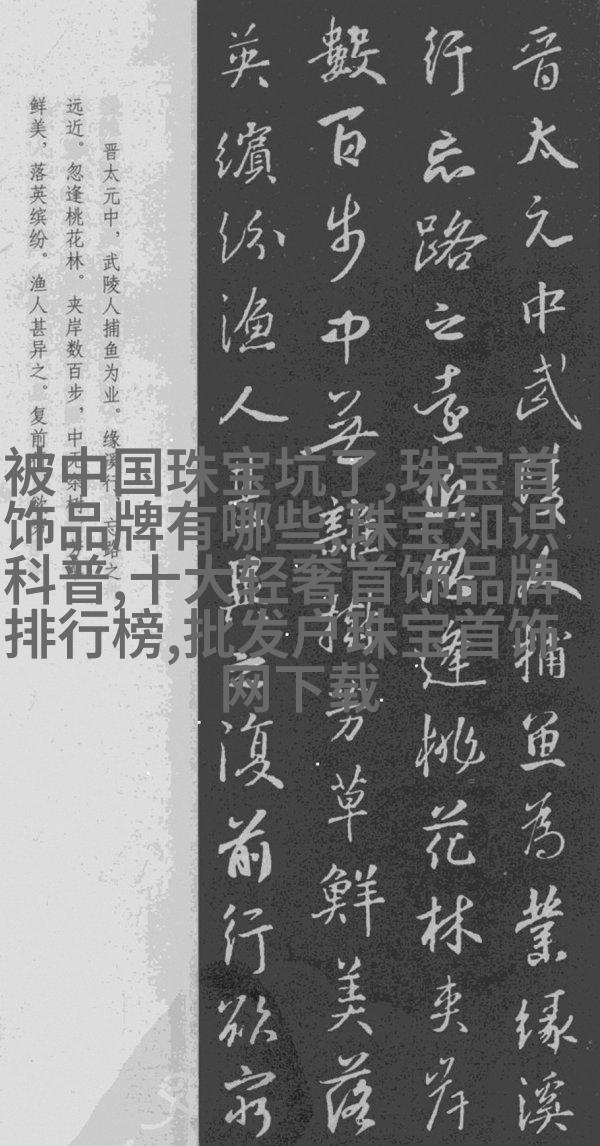 晉太元中武陵人捕魚為業緣溪
行忘路之遠近忽逢桃花林夾岸
數百步中無雜樹芳草鮮美落
英繽紛漁人甚異之復前行欲窮
晋太元中，武陵人捕鱼为业。缘溪行，忘路之
远近。忽逢桃花林。夹岸数百步，中无杂树，
鲜美，落英缤纷。渔人甚异之。复前
被中国珠宝坑了,珠宝首
饰品牌有哪些,珠宝知识
科普,十大轻奢首饰品牌
排行榜,批发户珠宝首饰
网下载